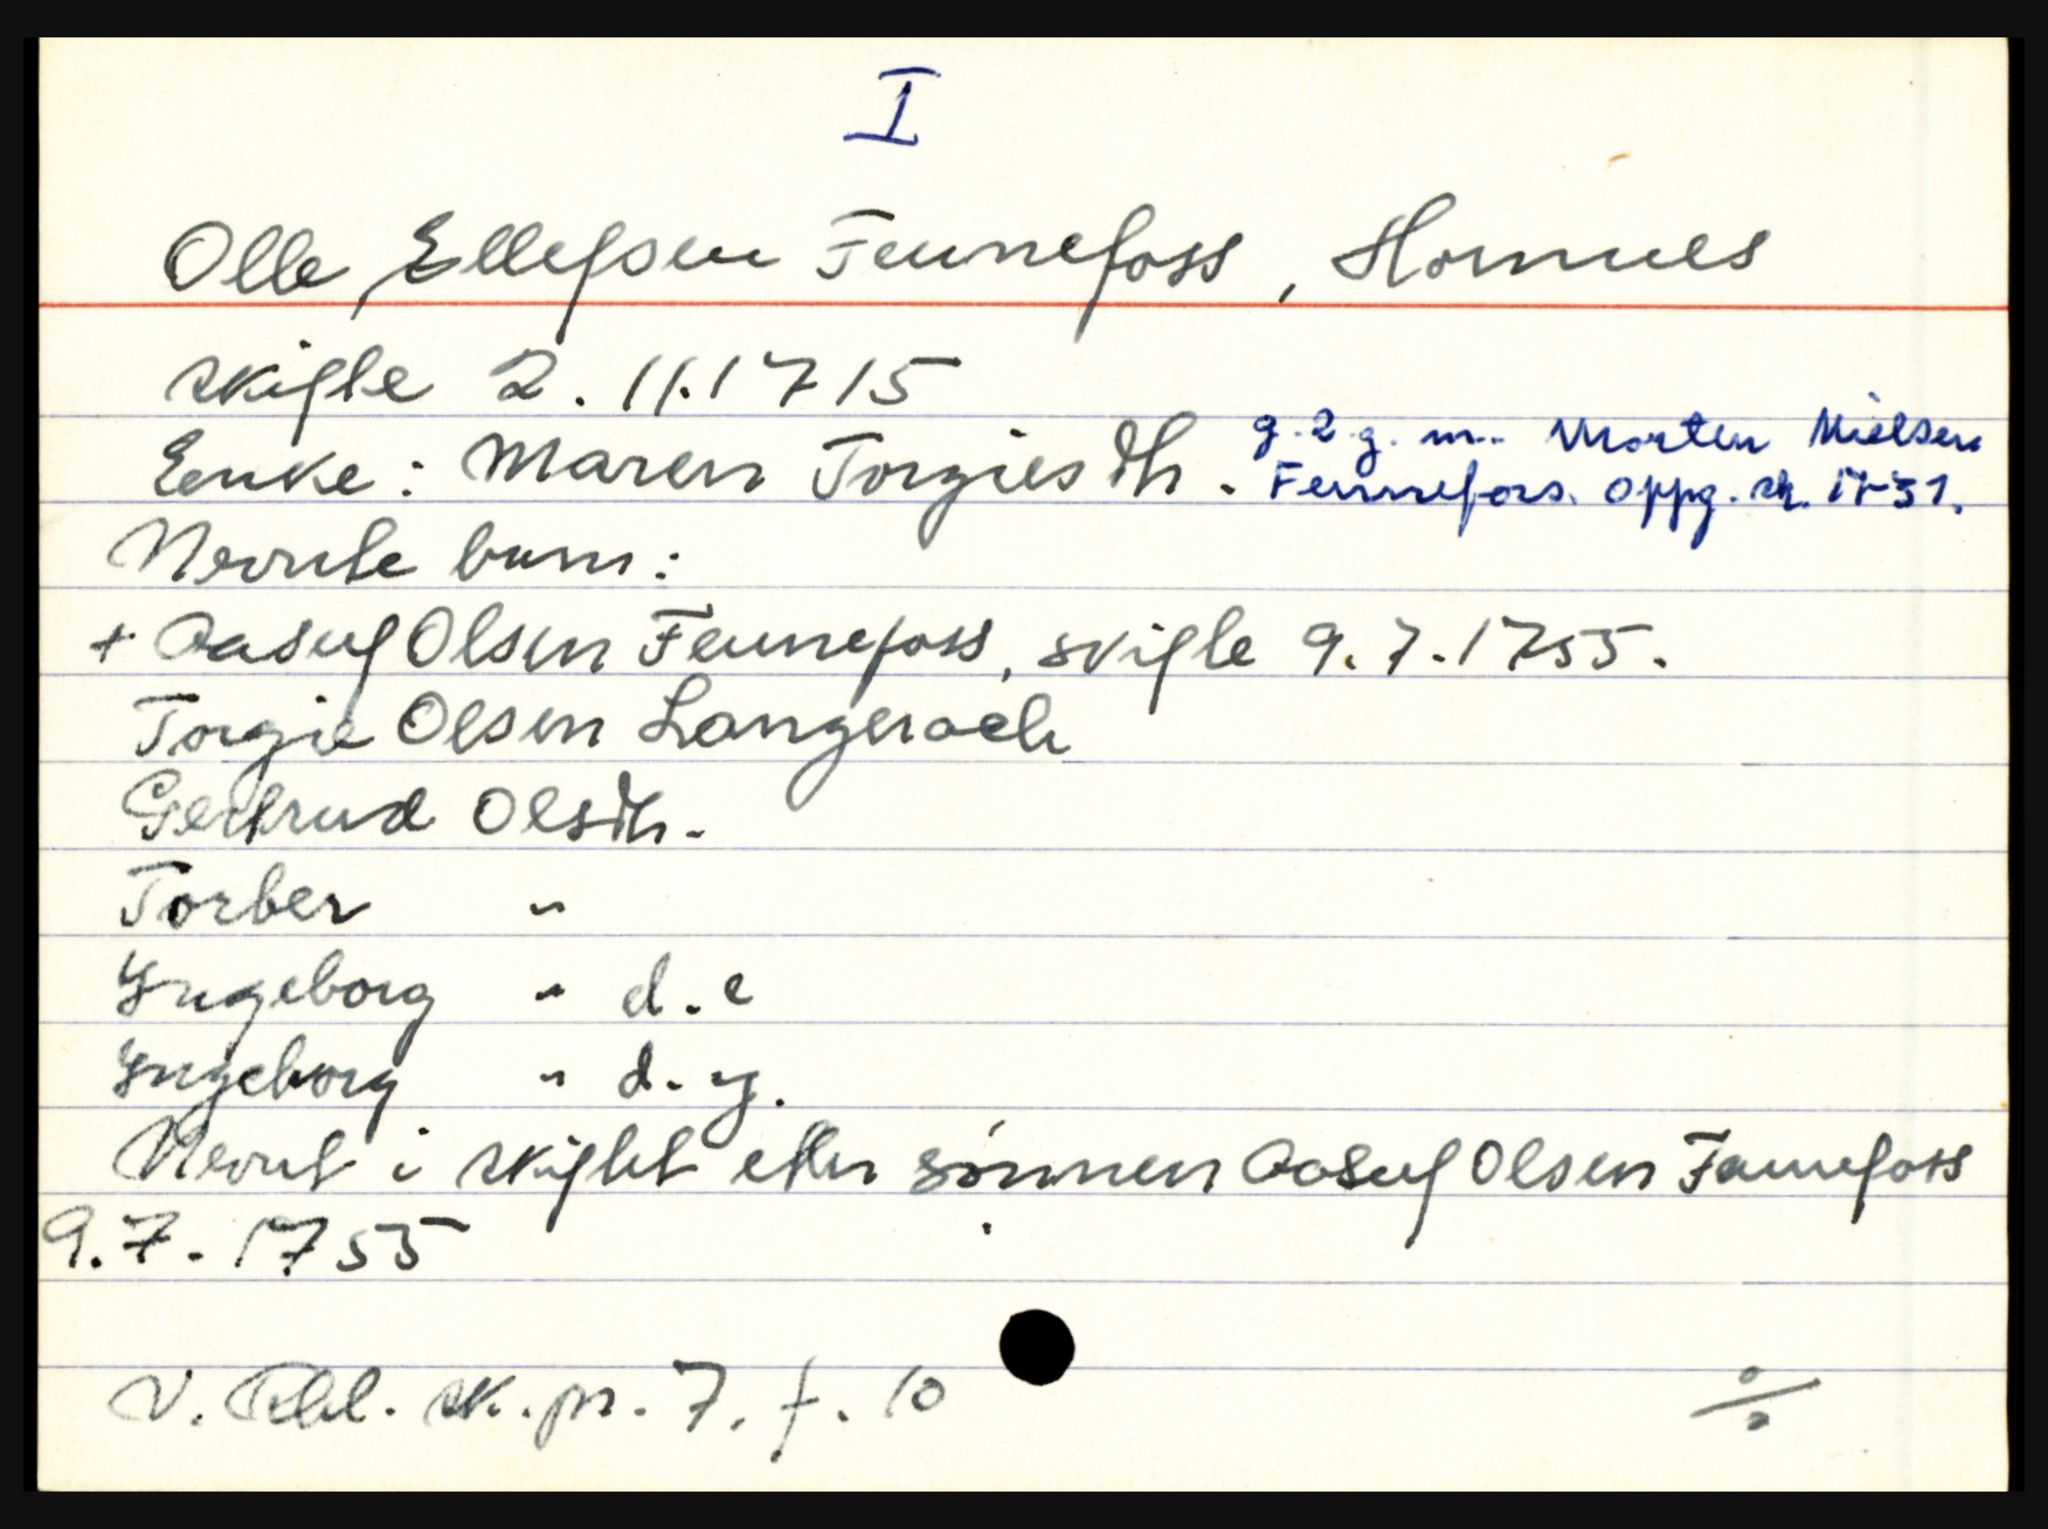 I
Olle Ellefsen Fennefoss, Hornnes
Skifte 2.11.1715
Enke: Maren Torgiesdtr. g. 2. g. m. Morten Nielsen
Fennefoss. Oppg. sk. 1731.
Nevnte barn:
+ Aasuf Olsen Fennefoss, skifte 9.7.1755.
Torgie Olsen Langerach
Gertrud Olsdtr.
Torber "
Ingeborg " d.e
Ingeborg " d.y.
Nevnt i skiftet etter sønnen Aasuf Olsen Fennefoss
9.7.1755
V. Rbl. sk.pr. 7. f. 10